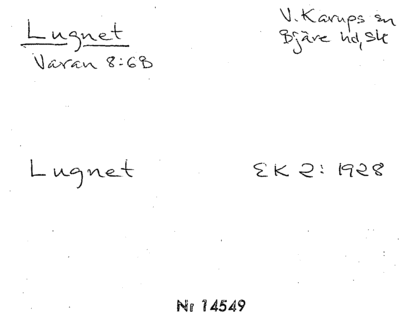 Lugnet
Varan 8:6B
V. Karups sn
Bjäre hd, Sk
Lugnet
EK 2: 1928
Nr 14549